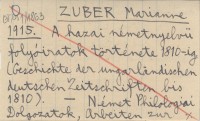 ZUBER Marianne
1915. A hazai németnyelvű
folyóiratok története 1810-ig
(Geschichte der ungarländischen
deutschen Zeitschriften bis
1810). — Német Philologiai
Dolgozatok, Arbeiten zur